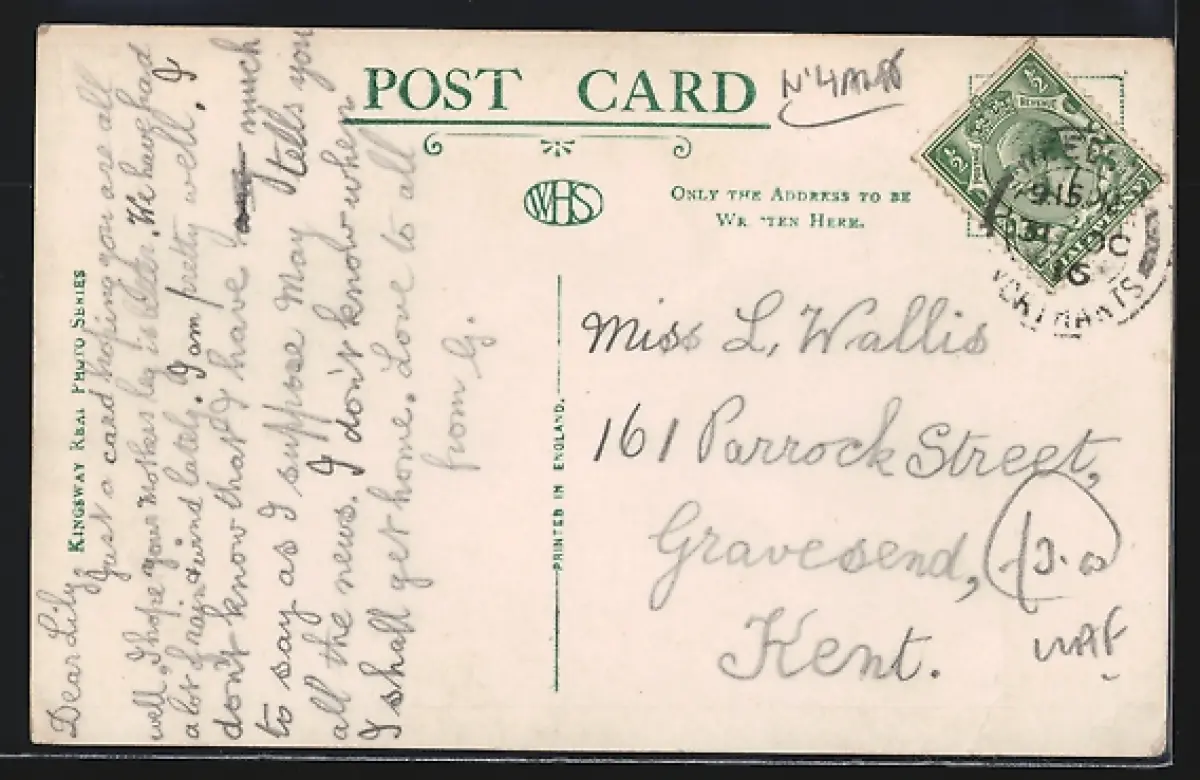 POST CARD
WHS
ONLY THE ADDRESS TO BE
WR TEN HERE.
KINGSWAY REAL PHOTO SERIES
PRINTED IN ENGLAND.
REVENUE
½
½
9.15
16
Dear Lily,
Just a card hoping you are all
well. I hope your Mothers leg is better. We have had
a lot of rain & wind lately. I am pretty well. I
don't know that I have much
to say as I suppose May tells you
all the news. I don't know when
I shall get home. Love to all
from G.
Miss L. Wallis
161 Parrock Street,
Gravesend,
Kent.